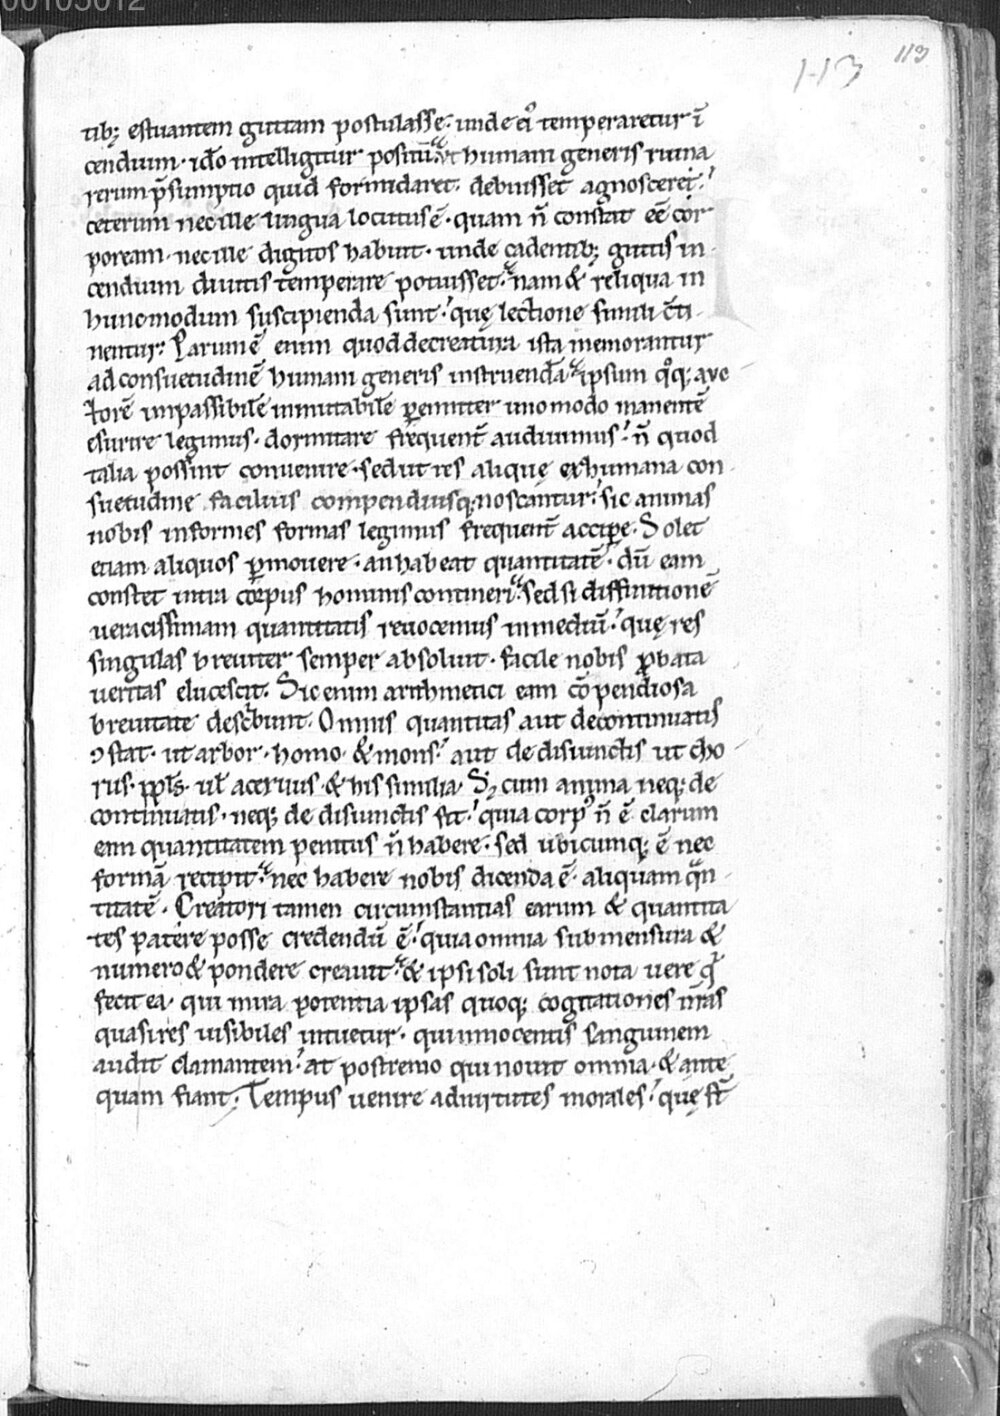 00105012
113
113
tib; estuantem guttam postulasse. unde ei temperaretur ī
cendium. ido intelligitur positū. ut humani generis ruina
rerum p̄sumptio quid formidaret. debuisset agnosceret.
ceterum nec ille lingua locutus ē. quam n̄ constat eē cor
poream. nec ille digitos habuit. unde cadentib; guttis in
cendium diuitis temperare potuisset. nam & reliqua in
hunc modum suscipienda sunt. quę lectione simili c̄ti
nentur. Parum ē enim quod de creatura ista memorantur
ad consuetudinē humani generis instruendā. ipsum qͦq; auc
torē impassibilē inmutabilē perenniter uno modo manentē
esurire legimus. dormitare frequent̄ audiuimus. n̄ quod
talia possint conuenire. sed ut res alique ex humana con
suetudine facilius compendiusq; noscantur. sic animas
nobis informes formas legimus frequent̄ accipe. Solet
etiam aliquos ꝑmouere. an habeat quantitatē. dū eam
constet intra corpus hominis contineri. sed si diffinitionē
ueracissimam quantitatis reuocemus in mediū. quę res
singulas breuiter semper absoluit. facile nobis ꝓbata
ueritas elucescit. Sic enim arithmetici eam cōpendiosa
breuitate describunt. Omnis quantitas aut de continuatis
ꝯstat. ut arbor. homo. & mons. aut de disiunctis ut cho
rus. ppls. ul̄ aceruus. & his similia. Sꝫ cum anima neq; de
continuatis. neq; de disiunctis sit. quia corpꝰ n̄ ē. clarum
eam quantitatem penitus n̄ habere. sed ubicumq; ē nec
formā recipit. nec habere nobis dicenda ē. aliquam qͣn
titatē. Creatori tamen circumstantias earum & quantita
tes patere posse credendū ē. quia omnia sub mensura &
numero & pondere creauit. & ipsi soli sunt nota uere q̄
fecit ea. qui mira potentia ipsas quoq; cogitationes nr̄as
quasi res uisibiles intuetur. qui innocentis sanguinem
audit clamantem. at postremo qui nouit omnia. & ante
quam fiant. Tempus uenire ad uirtutes morales. quę st̄